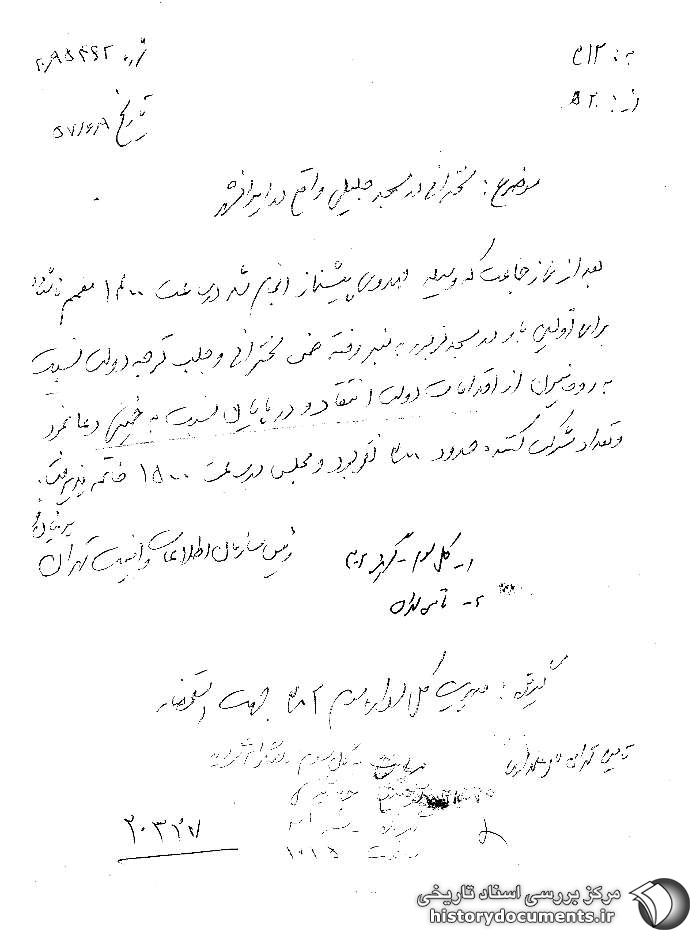 به: ۳۱۲
از: ۲۰ ه
تاریخ ۵۷/۶/۸
موضوع: سخنرانی در مسجد جلیلی واقع در ایرانشهر
بعد از نماز جماعت که وسیله مهدوی پیشنماز انجام شد در ساعت ۱۴۰۰ معمم ناشناس
برای اولین بار در مسجد مزبور به منبر رفته ضمن سخنرانی و جلب توجه دولت نسبت
به روحانیون از اقدامات دولت انتقاد و در پایان نسبت به خمینی دعا نمود
و تعداد شرکت کننده حدود ۳۰۰ نفر بود و مجلس در ساعت ۱۵۰۰ خاتمه پذیرفت.
رئیس سازمان اطلاعات و امنیت تهران
گیرنده: مدیریت کل اداره سوم ۳۱۲ جهت استحضار
۲۰۳۲۷
مرکز بررسی اسناد تاریخی
historydocuments.ir